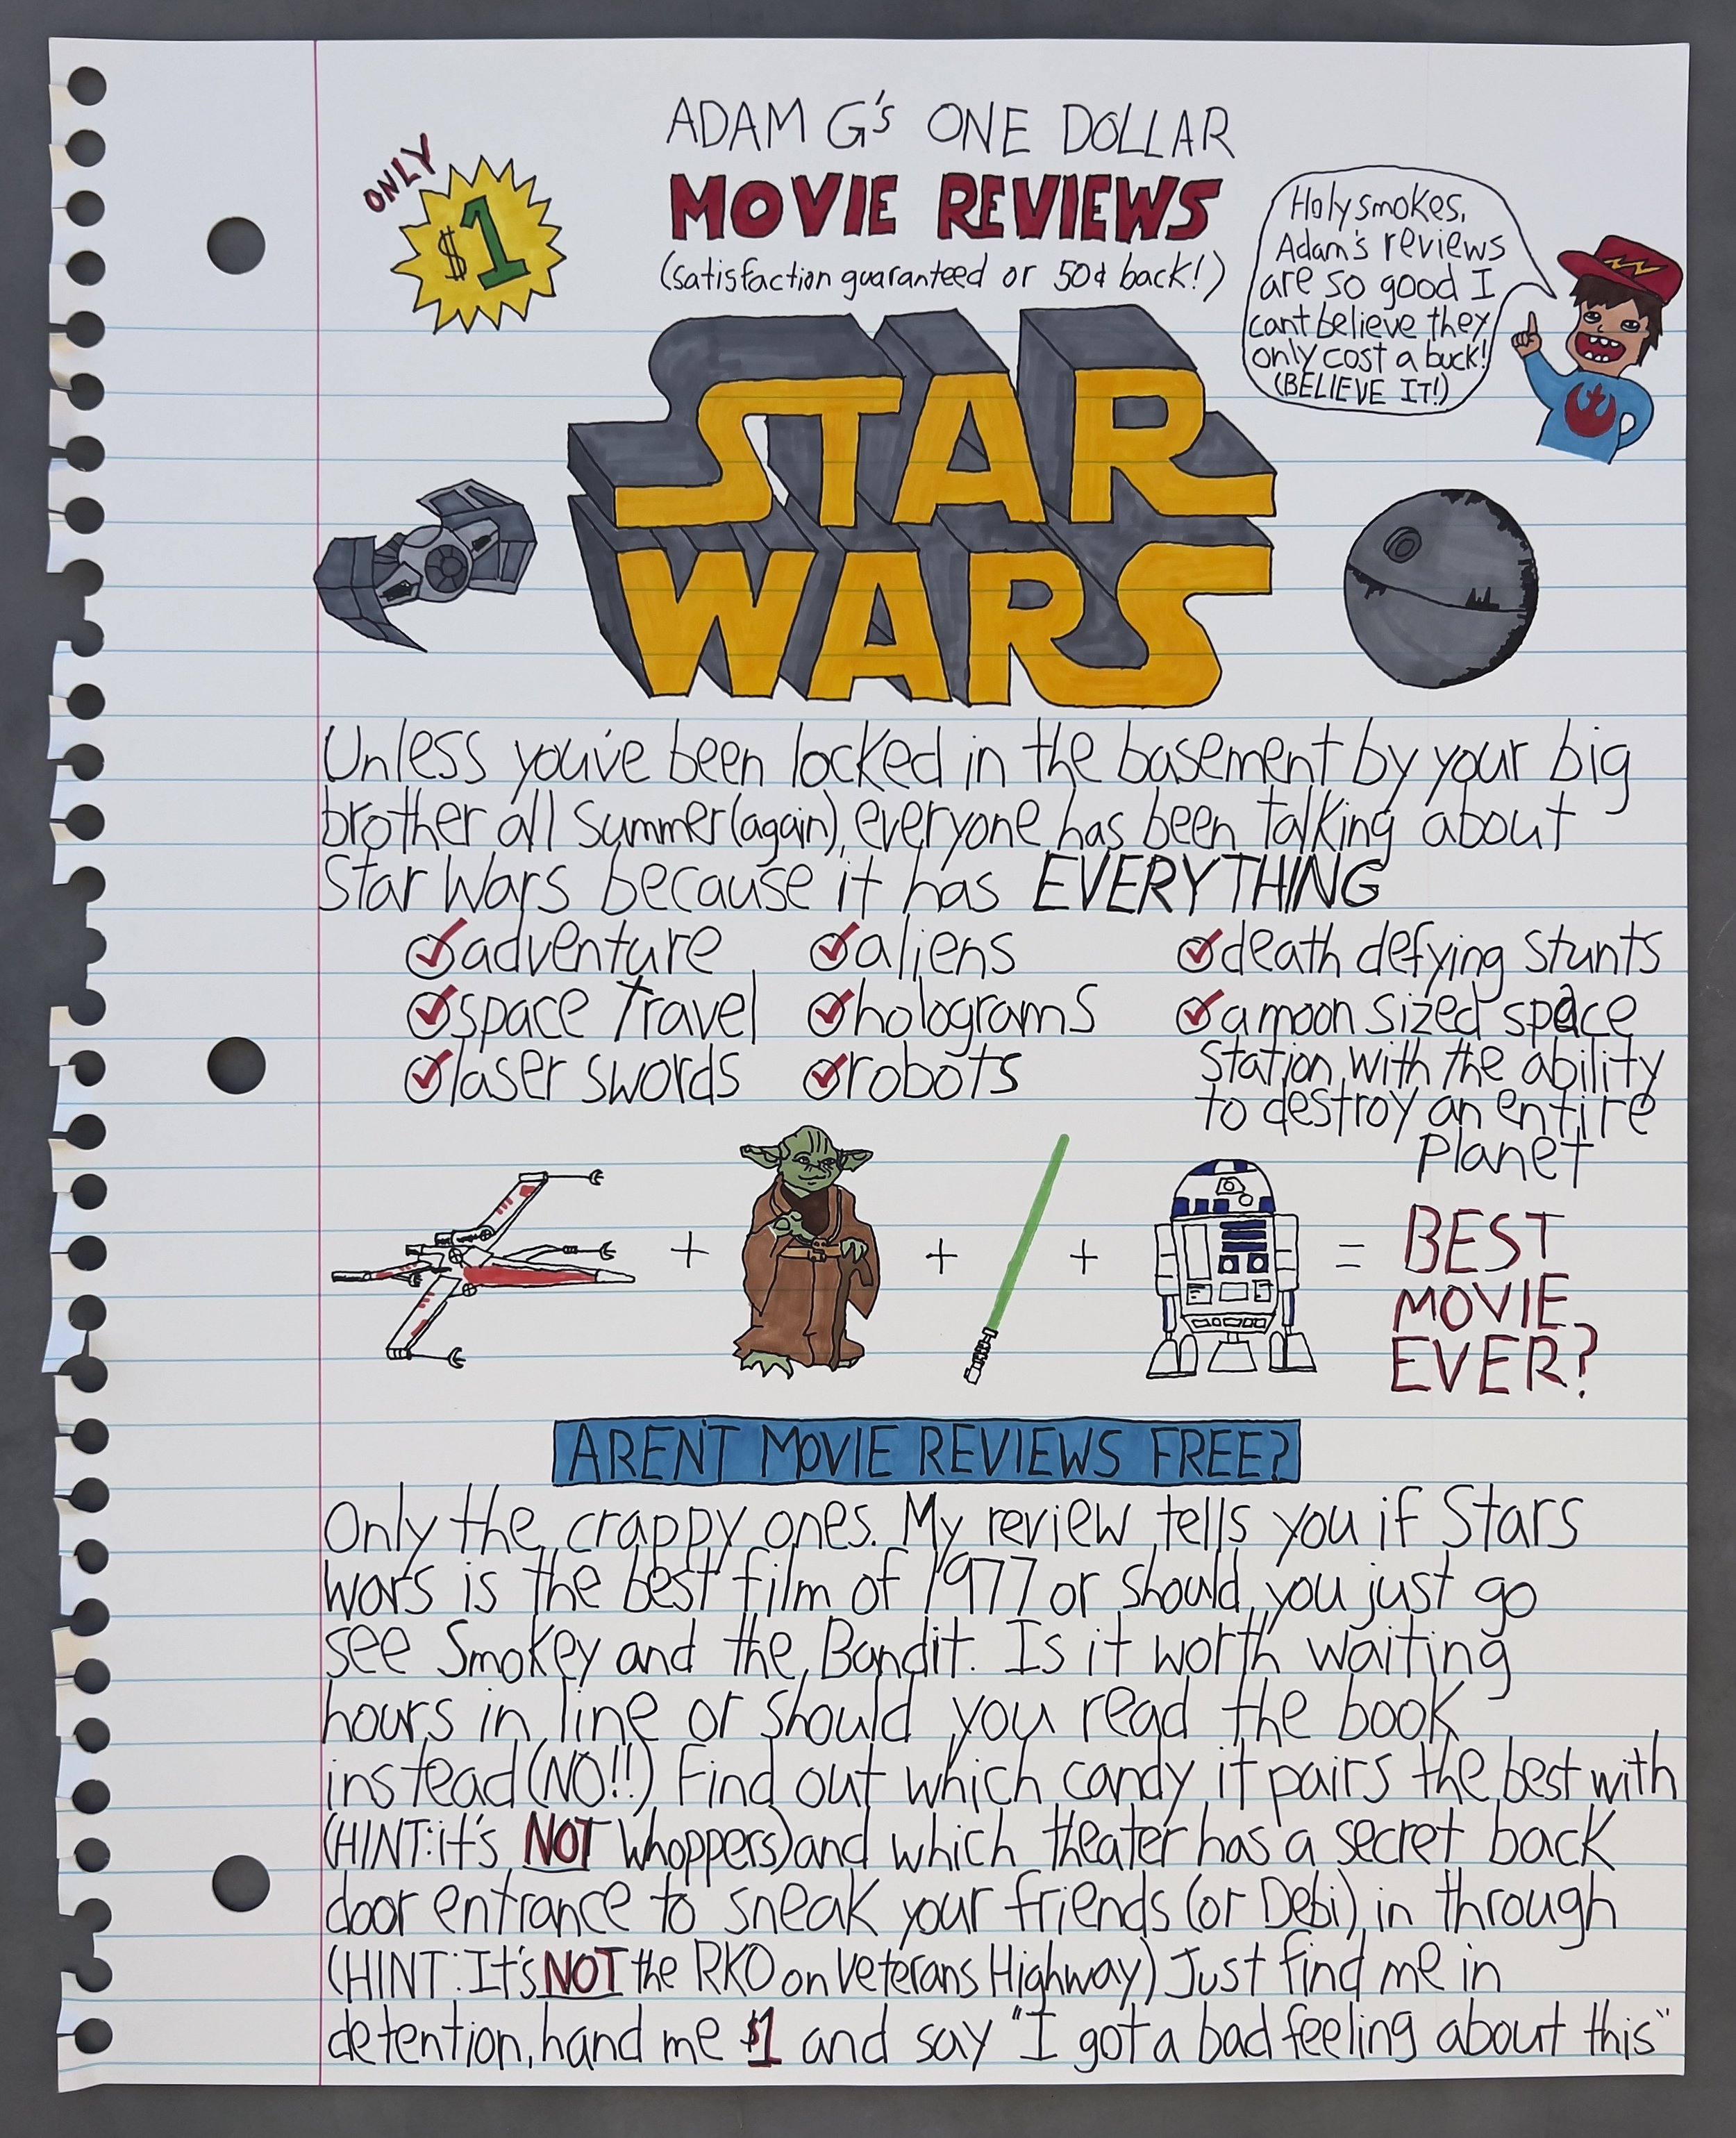 ADAM G's ONE DOLLAR
MOVIE REVIEWS
(satisfaction guaranteed or 50¢ back!)
ONLY
$1
Holy smokes,
Adam's reviews
are so good I
cant believe they
only cost a buck!
(BELIEVE IT!)
STAR
WARS
Unless you've been locked in the basement by your big
brother all summer (again), everyone has been talking about
Star Wars because it has EVERYTHING
adventure
space travel
laser swords
aliens
holograms
robots
death defying stunts
a moon sized space
station with the ability
to destroy an entire
planet
+ + + =
BEST
MOVIE
EVER?
AREN'T MOVIE REVIEWS FREE?
Only the crappy ones. My review tells you if Stars
wars is the best film of 1977 or should you just go
see Smokey and the Bandit. Is it worth waiting
hours in line or should you read the book
instead (NO!!) Find out which candy it pairs the best with
(HINT: it's NOT Whoppers) and which theater has a secret back
door entrance to sneak your friends (or Debi) in through
(HINT: It's NOT the RKO on Veterans Highway) Just find me in
detention, hand me $1 and say "I got a bad feeling about this"